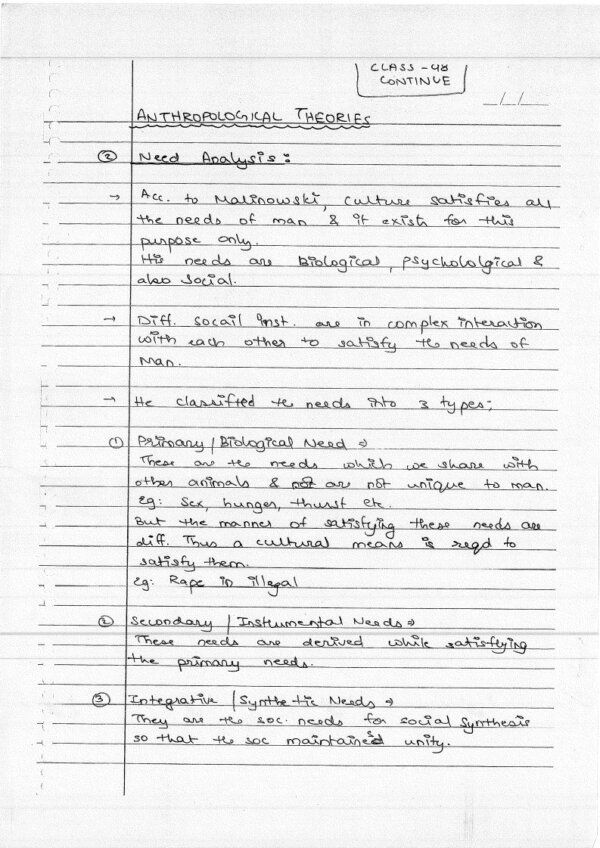 CLASS - 48
CONTINUE
_/_/_
ANTHROPOLOGICAL THEORIES
② Need Analysis:
→ Acc. to Malinowski, culture satisfies all
the needs of man & it exists for this
purpose only.
His needs are Biological, psychololgical &
also social.
→ Diff. socail Inst. are in complex interaction
with each other to satisfy the needs of
Man.
→ He classified the needs into 3 types;
① Primary / Biological Need ⇒
These are the needs which we share with
other animals & are not unique to man.
Eg: Sex, hunger, thurst etc.
But the manner of satisfying these needs are
diff. Thus a cultural means is reqd to
satisfy them.
Eg: Rape in illegal
② Secondary / Instumental Needs ⇒
These needs are derived while satisftying
the primary needs.
③ Integrative / Synthetic Needs ⇒
They are the soc. needs for social synthesis
so that the soc maintains unity.